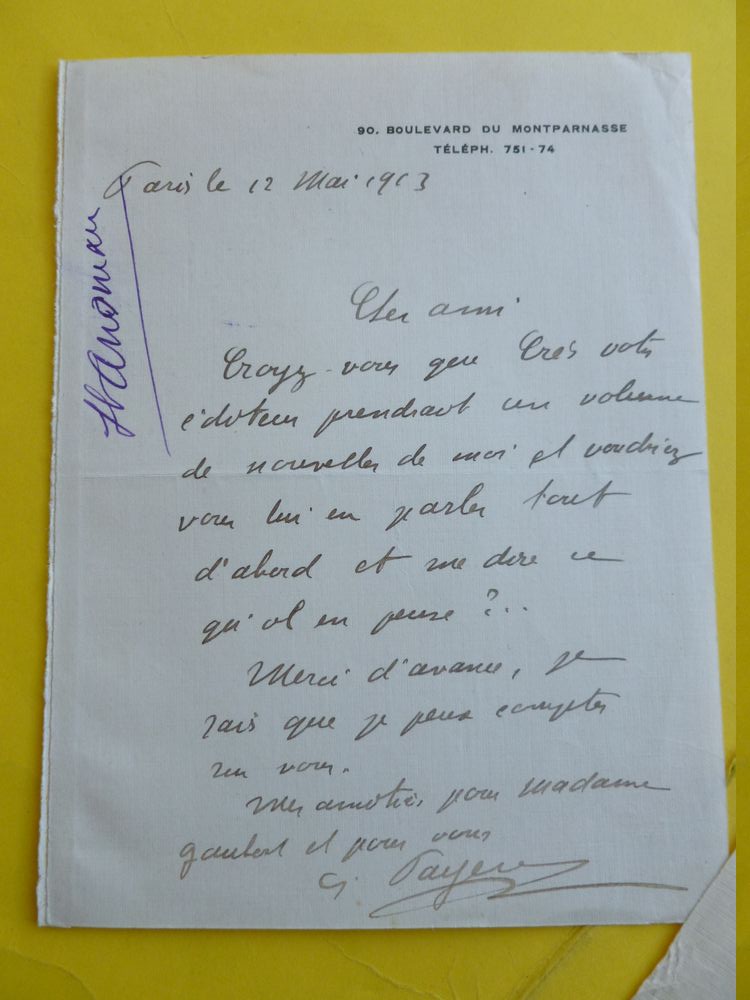 90, BOULEVARD DU MONTPARNASSE
TÉLÉPH. 751-74
Paris le 12 Mai 1913
Cher ami
Croyez-vous que Crès votre
éditeur prendrait un volume
de nouvelles de moi et voudriez
vous lui en parler tout
d'abord et me dire ce
qu'il en pense ?..
Merci d'avance, je
sais que je peux compter
sur vous.
Mes amitiés pour madame
Gaubert et pour vous